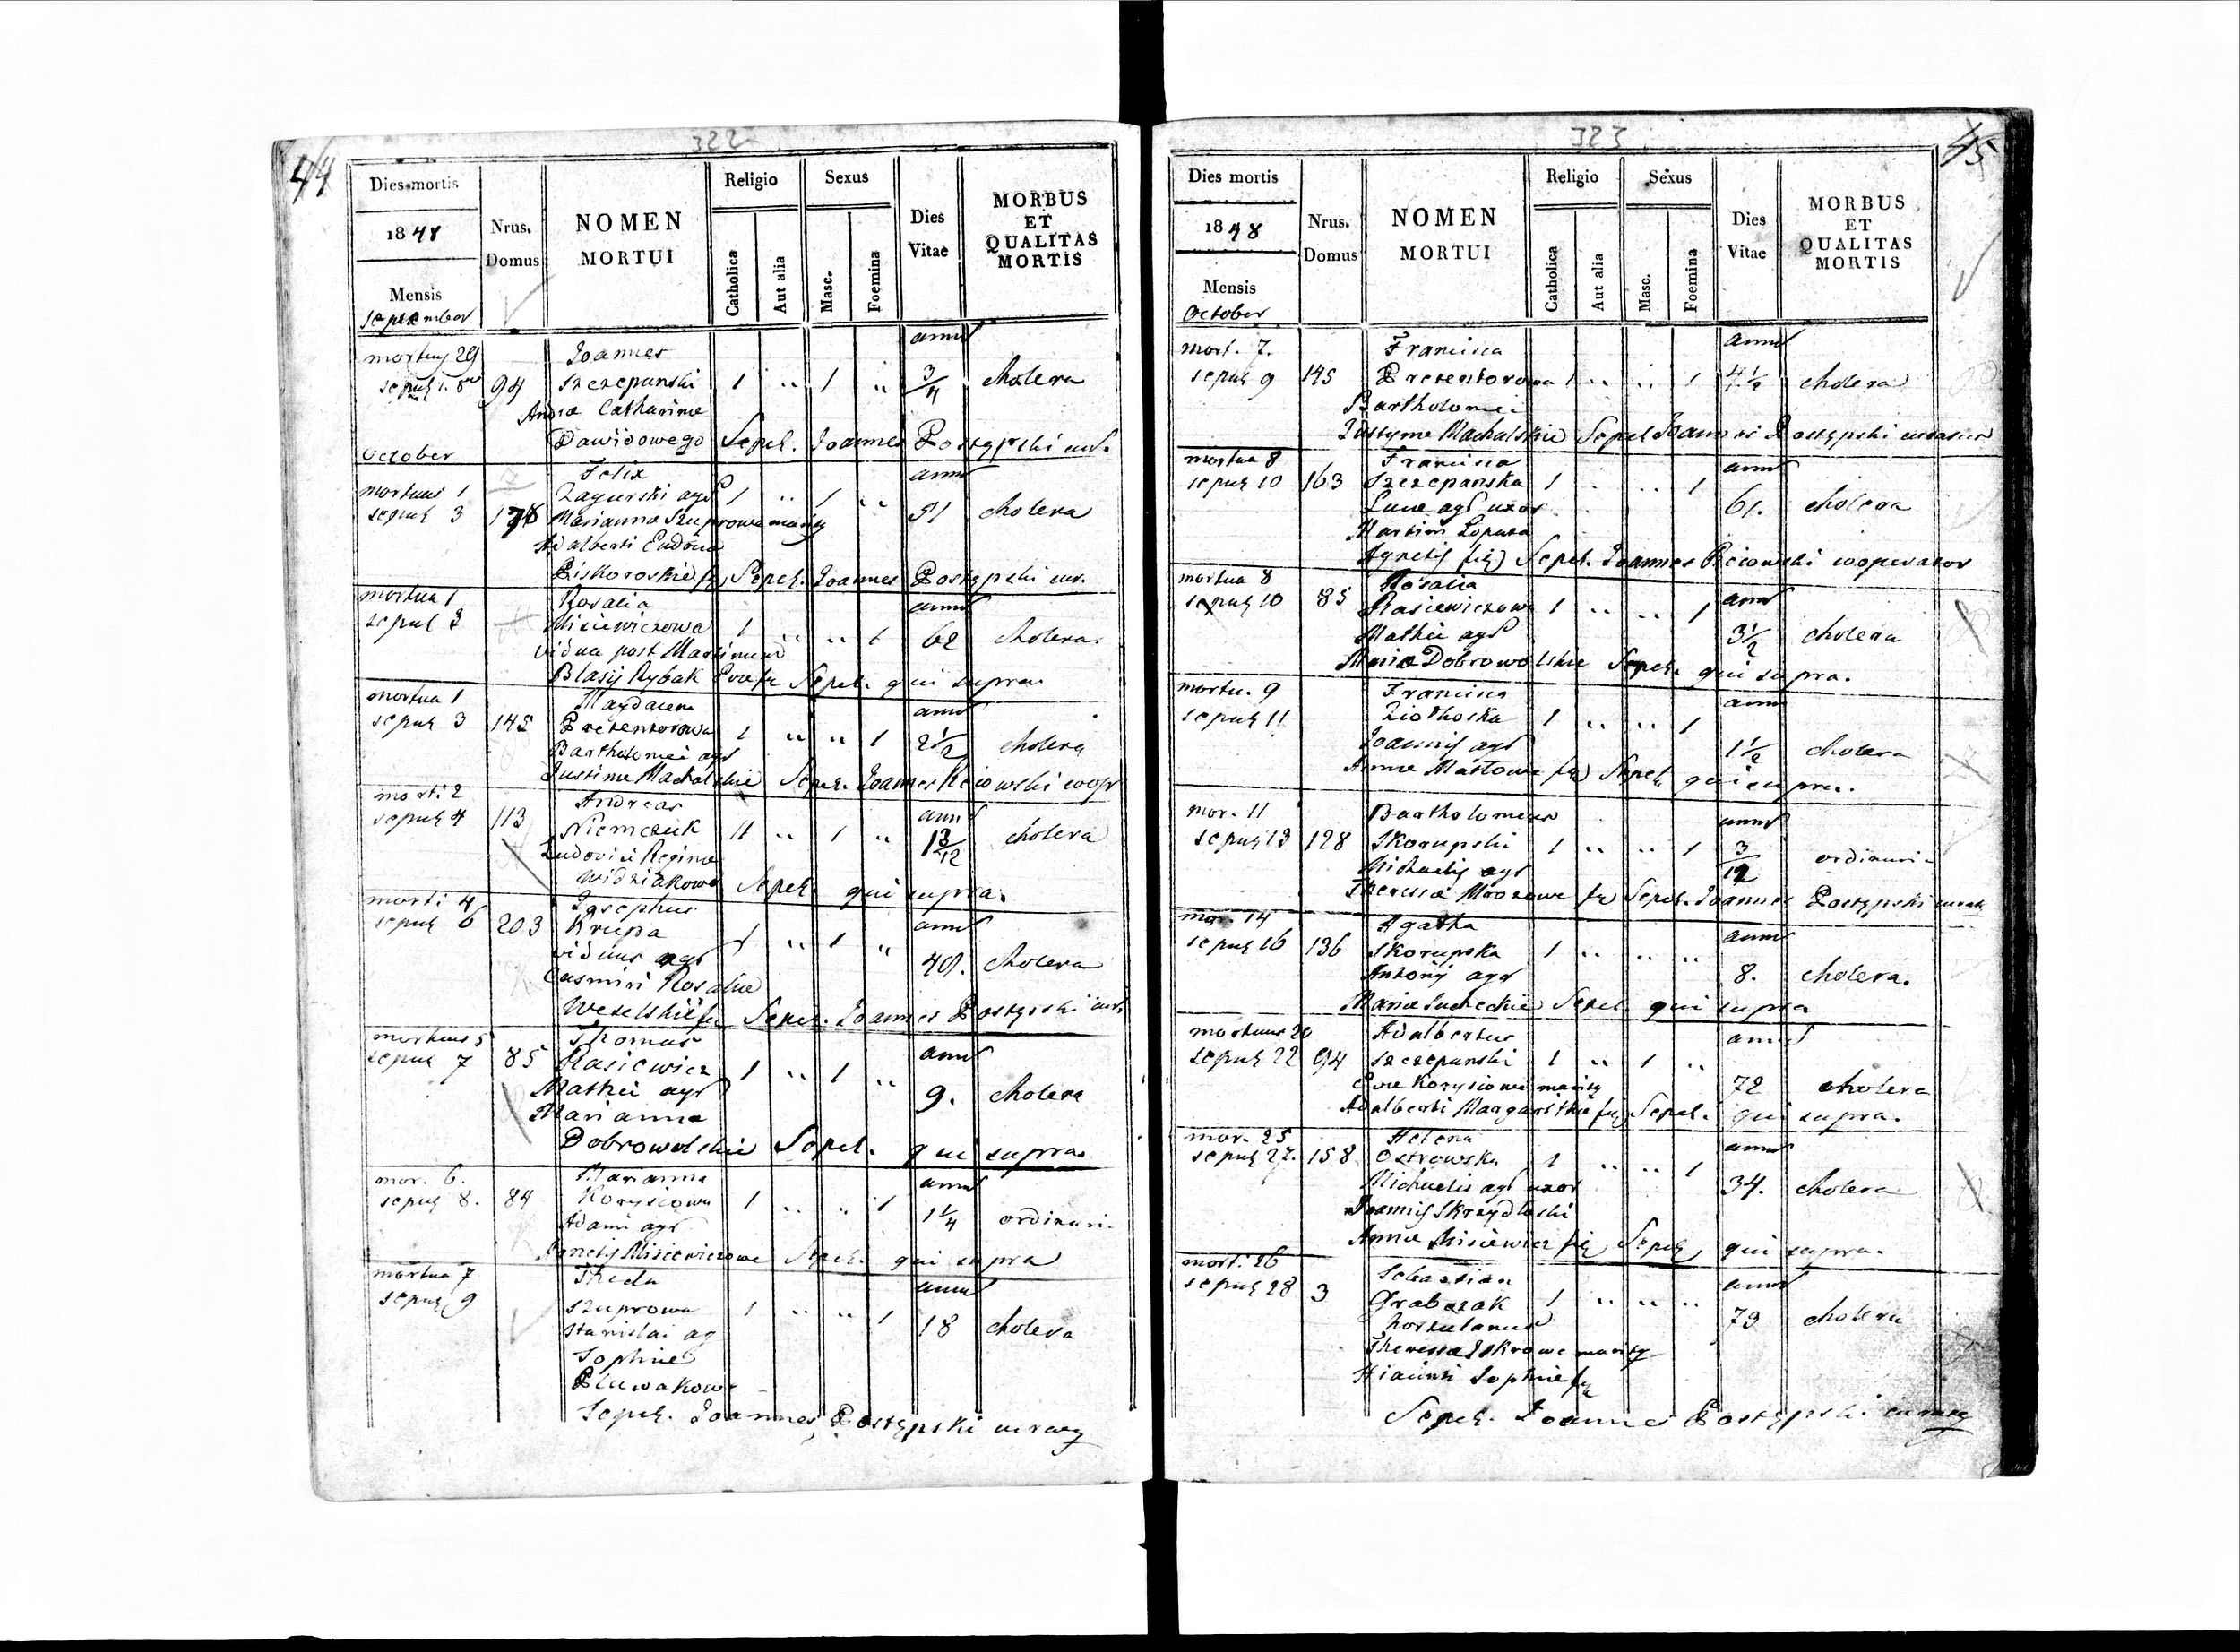 322
44
Dies mortis
1848
Mensis
September
Nrus. Domus
NOMEN
MORTUI
Religio
Catholica
Aut alia
Sexus
Masc.
Foemina
Dies
Vitae
MORBUS
ET
QUALITAS
MORTIS
mortuus 29 Joannes anni
94 Szczepanski 1 " 1 " 3/4 cholera
Catharinae
Dawidowego Sepel. Joannes Postępski cur.
October
mortuus 1 Felix anni
sepul 3 Zagurski agr 1 " 1 " 51 cholera
Marianna Szuprowa marity
Adalberti
Piskoroskie Sepel. Joannes Postępski cur.
mortua 1 Rosalia anni
sepul 3 Misiewiczowa 1 " " 1 62 cholera
vidua post Martinum
Blasij Rybak Evae Sepel. qui supra
mortua 1 Magdalena anni
sepul 3 145 Prezentorowna 1 " " 1 2 1/2 cholera
Bartholomei agr
Justinae Machalskie Sepel. Joannes Kciowski coop
morti 2 Andreas anni
sepul 4 113 Niemczuk 11 " 1 " 13/12 cholera
Ludovici Reginae
Widziakowe Sepel. qui supra.
morti 4 Josephus anni
sepul 6 203 Krupa 1 " 1 " cholera
viduus agr
Casmiri Rosaliae
Weselskie Sepel. Joannes Postępski cur.
mortuus 5 Thomas anni
sepul 7 85 Rasiewicz 1 " 1 " 9. cholera
Mathei agr
Marianna
Dobrowolskie Sepel. qui supra
mor. 6. Marianna anni
sepul 8. 84 Korysiowa 1 " " 1 1 1/4 ordinari
Adami agr
Agnetis Misiewiczowe Sepel. qui supra
mortua 7 Thecla anni
sepul 9 Szuprowa 1 " " 1 18 cholera
Stanislai ag
Sophiae
Sepel. Joannes Postępski curatg
323
45
Dies mortis
1848
Mensis
October
Nrus.
Domus
NOMEN
MORTUI
Religio
Catholica
Aut alia
Sexus
Masc.
Foemina
Dies
Vitae
MORBUS
ET
QUALITAS
MORTIS
mort. 7. Francisca anni
sepul 9 145 Prezentorowna 1 " " 1 4 1/2 cholera
Bartholomei
Justynae Machalskie Sepel Joannes Postępski curator
mortua 8 Francisca anni
sepul 10 163 Szczepanska 1 " " 1 61. cholera
Lucae agr uxor
Martini Loputa
Agnetis Sepel. Joannes Kciowski cooperator
mortua 8 Rosalia anni
sepul 10 85 Rasiewiczowa 1 " " 1 3 1/2 cholera
Mathei agr
Mariae Dobrowolskie Sepel. qui supra.
mortu. 9 Francisca anni
sepul 11 1 " " 1 1 1/2 cholera
Joannis agr
Annae Mastowe Sepel qui supra.
mor. 11 Bartholomeus anni
sepul 13 128 Skorupski 1 " " 1 3/12 ordinari
Michaelis agr
Theresiae Mrozowe Sepel. Joannes Postępski curat
mor. 14 Agatha anni
sepul 16 136 Skorupska 1 " " " 8. cholera.
Antonij agr
Mariae Sucheckie Sepel qui supra
mortuus 20 Adalbertus anni
sepul 22 94 Szczepanski 1 " 1 " 72 cholera
Evae Korysiowe marity
Adalberti Margarithae Sepel. qui supra.
mor. 25 Helena anni
sepul 27. 158 Ostrowska 1 " " 1 34. cholera
Michaelis agr uxor
Joannis Skrzydloski
Annae Misiewicz Sepel qui supra.
mort. 26 Sebastian anni
sepul 28 3 Grabczak 1 " " " 73 cholera
hortulanus
Theresiae Iskrowe marity
Hiacinti Sophiae
Sepel. Joannes Postępski curatg